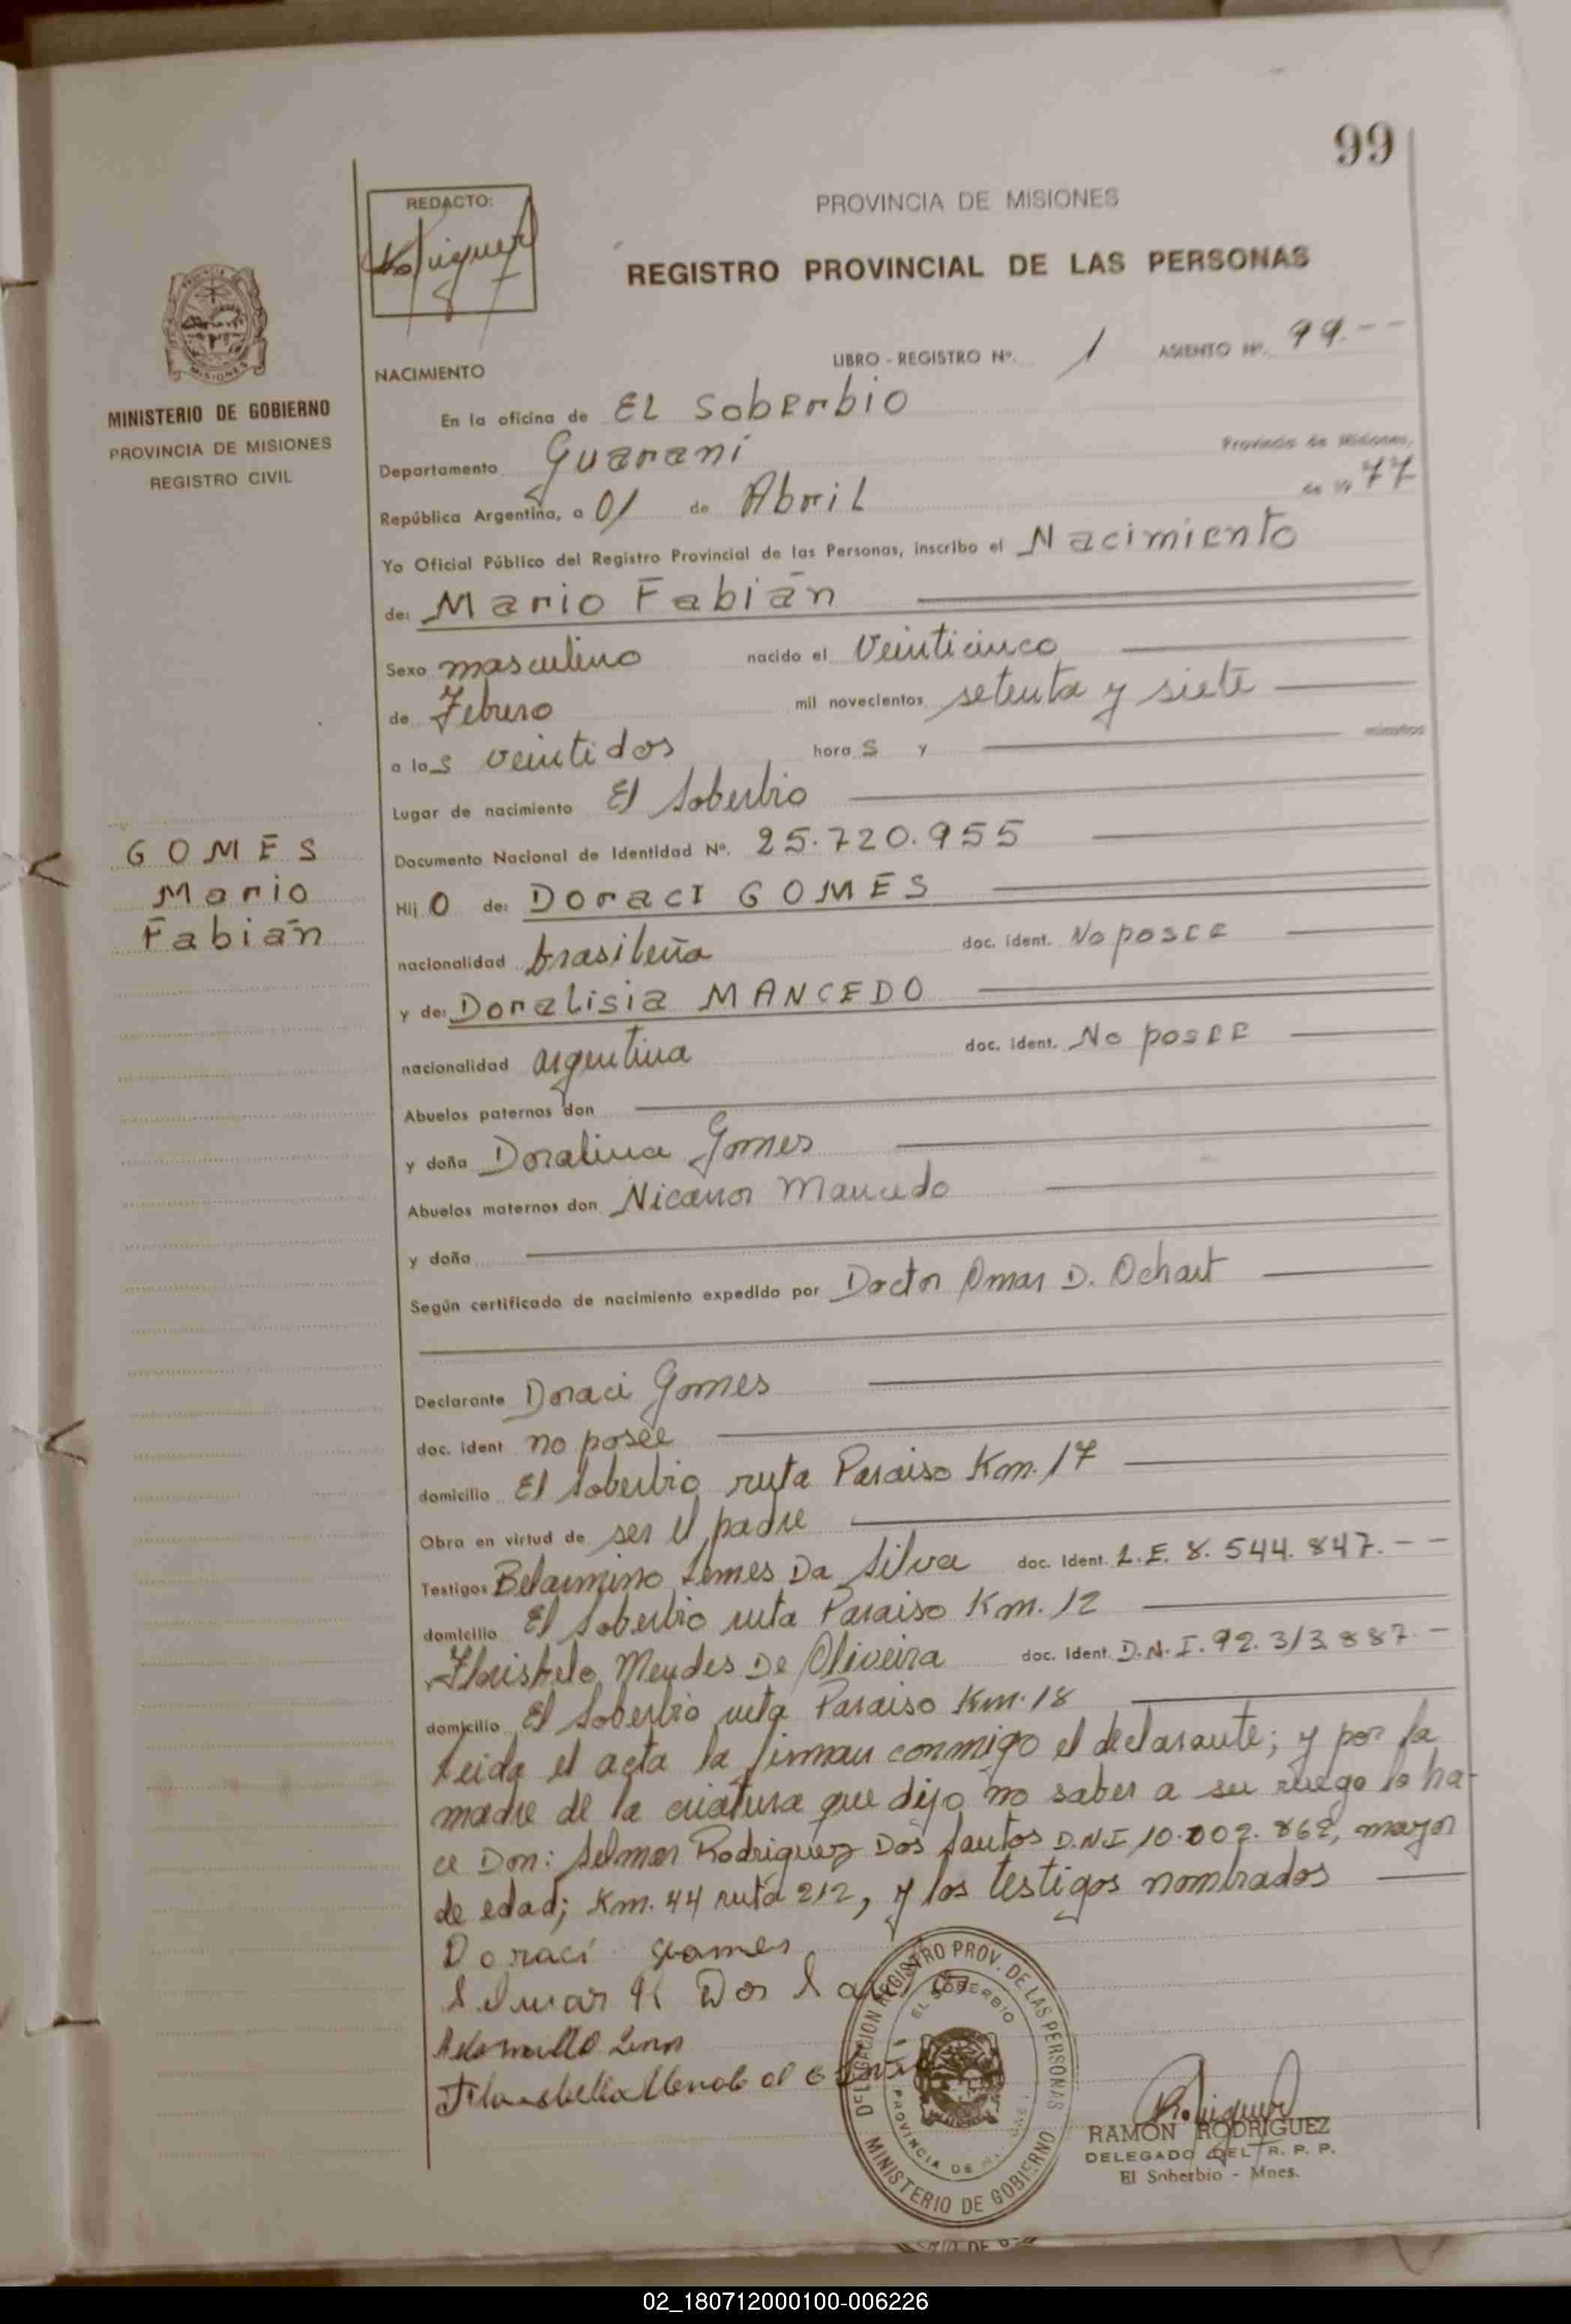 99
REDACTO:
PROVINCIA DE MISIONES
REGISTRO PROVINCIAL DE LAS PERSONAS
MINISTERIO DE GOBIERNO
PROVINCIA DE MISIONES
REGISTRO CIVIL
LIBRO - REGISTRO Nº. 1 ASIENTO Nº. 99.--
NACIMIENTO
En la oficina de El Soberbio
Departamento Guaraní Provincia de Misiones,
República Argentina, a 01 de Abril de 1977
Yo Oficial Público del Registro Provincial de las Personas, inscribo el Nacimiento
de: Mario Fabián
Sexo masculino nacido el Veinticinco
de Febrero mil novecientos setenta y siete
a las veintidos horas y minutos
Lugar de nacimiento El Soberbio
GOMES
Mario
Fabián
Documento Nacional de Identidad Nº. 25.720.955
Hijo de: Doraci GOMES
nacionalidad brasileña doc. ident. No posee
y de: Doralisia MANCEDO
nacionalidad argentina doc. ident. No posee
Abuelos paternos don
y doña Doralina Gomes
Abuelos maternos don Nicanor Mancedo
y doña
Según certificado de nacimiento expedido por Doctor Omar D. Ochart
Declarante Doraci Gomes
doc. ident no posee
domicilio El Soberbio ruta Paraiso Km. 17
Obra en virtud de ser el padre
Testigos Belarmino Lemes Da Silva doc. Ident. L.E. 8.544.847.--
domicilio El Soberbio ruta Paraiso Km. 12
Mendes De Oliveira doc. Ident. D.N.I. 92.313.887.-
domicilio El Soberbio ruta Paraiso Km. 18
Leida el acta la firman conmigo el declarante; y por la
madre de la criatura que dijo no saber a su ruego lo ha-
ce Don: Selmar Rodriguez Dos Santos D.N.I 10.002.862, mayor
de edad; Km. 44 ruta 212, y los testigos nombrados
Doraci gomes
Selmar R Dos
DELEGACION REGISTRO PROV. DE LAS PERSONAS
EL SOBERBIO
PROVINCIA DE
MINISTERIO DE GOBIERNO
RAMON RODRIGUEZ
DELEGADO DEL R. P. P.
El Soberbio - Mnes.
02_180712000100-006226